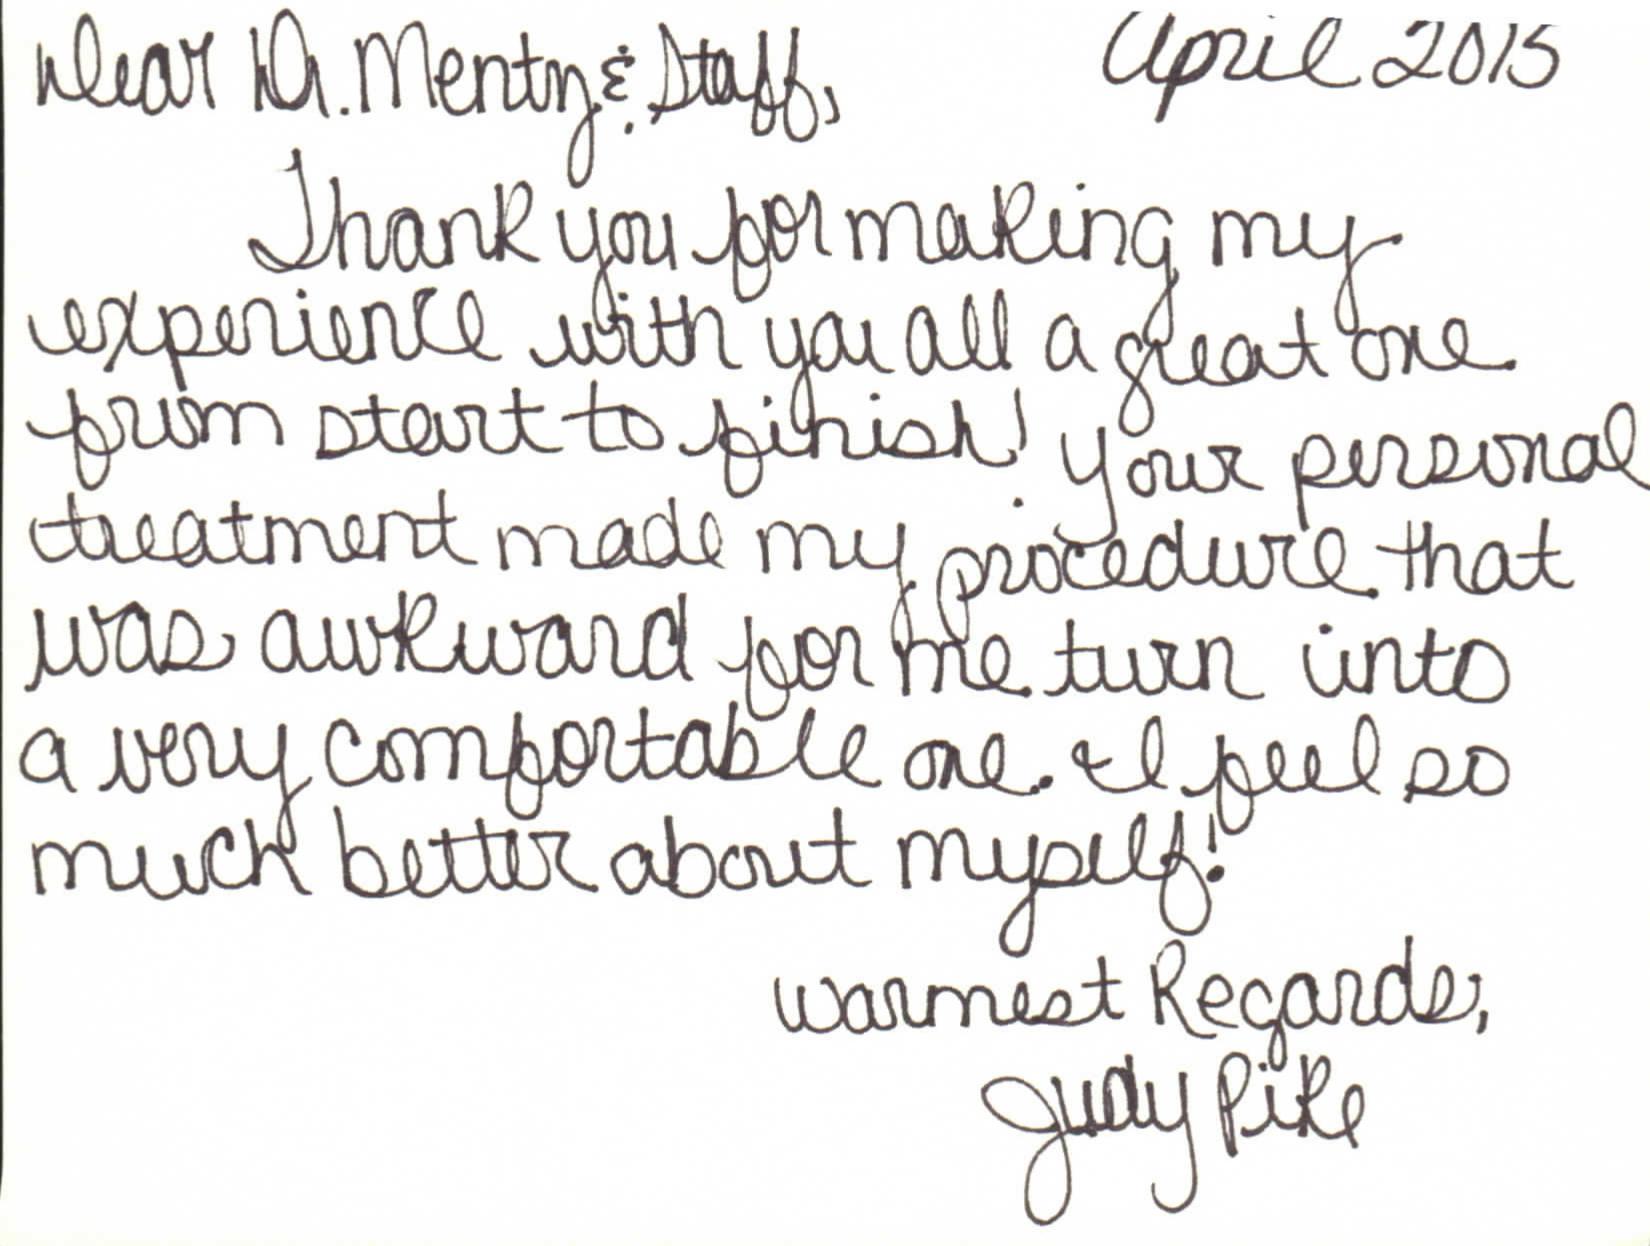 Dear Dr. Mentz & Staff, April 2015
Thank you for making my
experience with you all a great one
from start to finish! Your personal
treatment made my procedure that
was awkward for me turn into
a very comfortable one. I feel so
much better about myself!
Warmest Regards,
Judy Pike